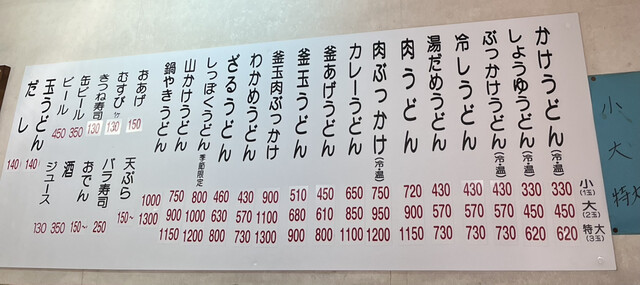 小(1玉) 大(2玉) 特大(3玉)
かけうどん(冷・温) 330 450 620
しょうゆうどん(冷・温) 330 450 620
ぶっかけうどん(冷・温) 430 570 730
冷しうどん 430 570 730
湯だめうどん 430 570 730
肉うどん 720 900 1150
肉ぶっかけ(冷・温) 750 950 1200
カレーうどん 650 850 1100
釜あげうどん 450 610 800
釜玉うどん 510 680 900
釜玉肉ぶっかけ 900 1100 1300
わかめうどん 430 570 730
ざるうどん 460 630 800
しっぽくうどん 季節限定 800 1000 1200
山かけうどん 750 900 1150
鍋やきうどん 1000 1300
おあげ 150
むすび 1ケ 130
きつね寿司 130
缶ビール 350
ビール 450
玉うどん 140
だし 140
天ぷら 150~
バラ寿司 250
おでん 150~
酒 350
ジュース 130
小
大
特大